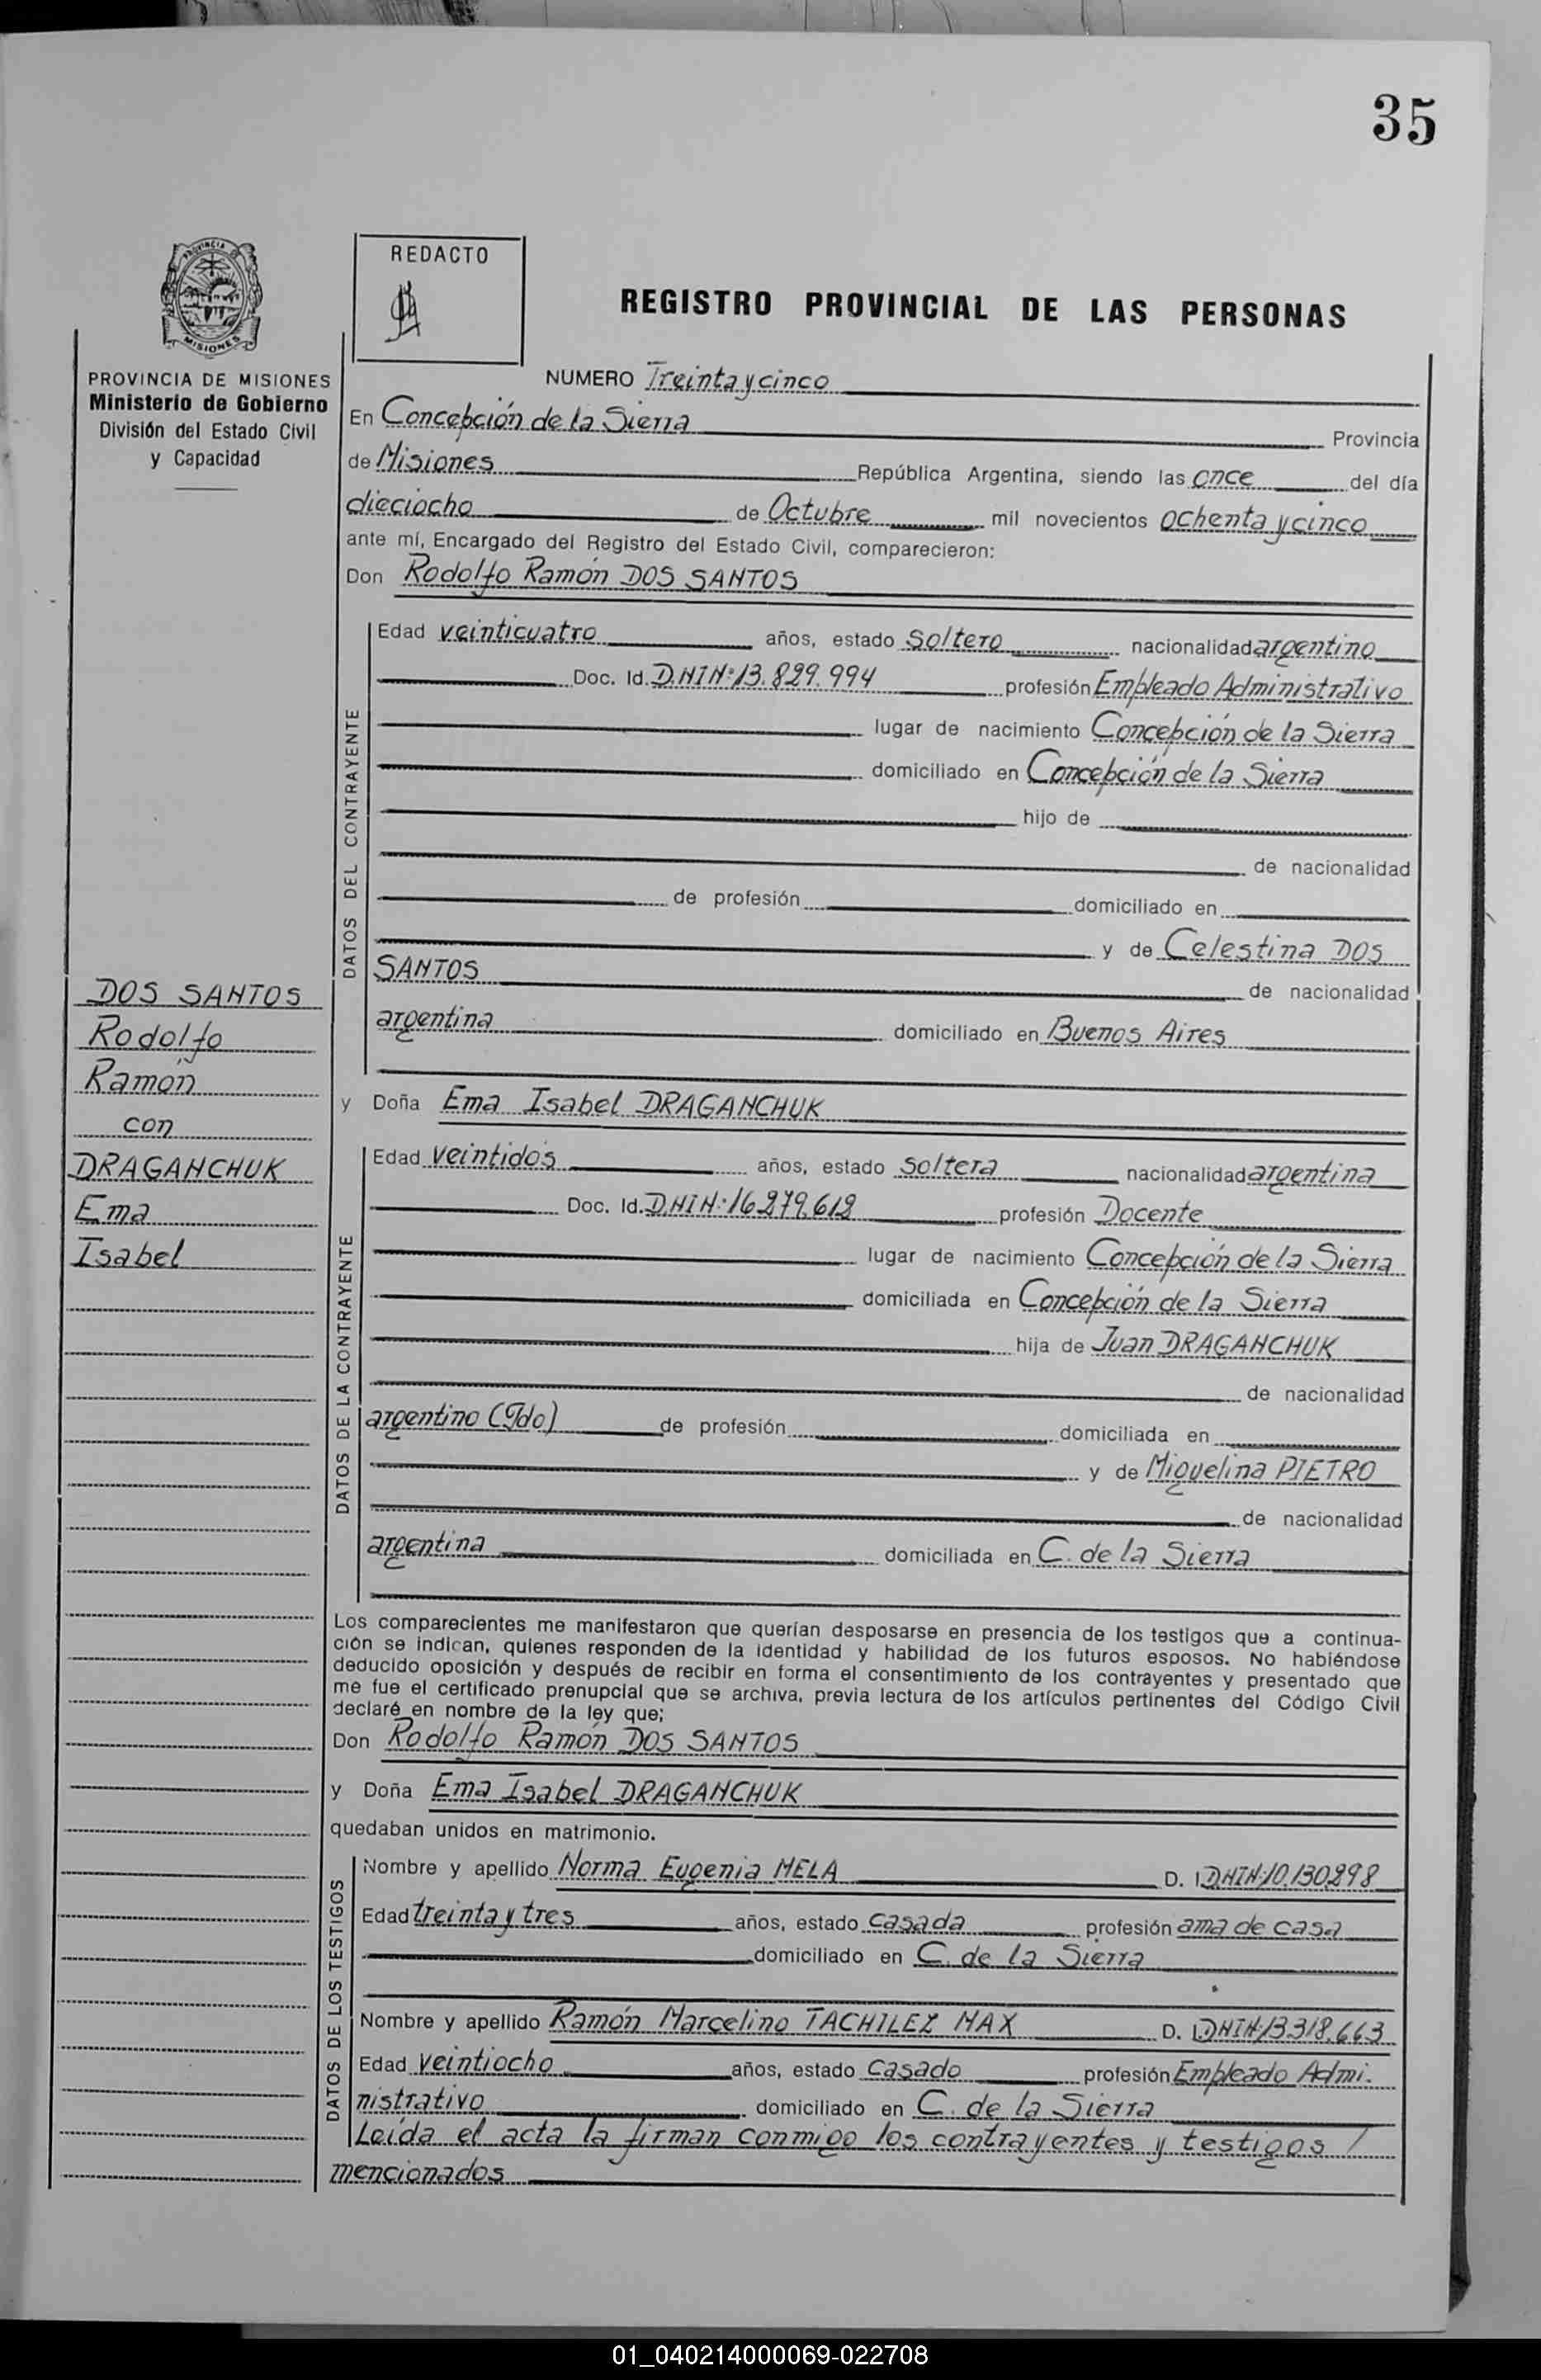 35
PROVINCIA DE
MISIONES
REDACTO
REGISTRO PROVINCIAL DE LAS PERSONAS
PROVINCIA DE MISIONES
Ministerio de Gobierno
División del Estado Civil
y Capacidad
NUMERO Treinta y cinco
En Concepción de la Sierra Provincia
de Misiones República Argentina, siendo las once del día
dieciocho de Octubre mil novecientos ochenta y cinco
ante mí, Encargado del Registro del Estado Civil, comparecieron:
Don Rodolfo Ramón DOS SANTOS
DATOS DEL CONTRAYENTE
Edad veinticuatro años, estado Soltero nacionalidad argentino
Doc. Id. D.N.I.N: 13.829.994 profesión Empleado Administrativo
lugar de nacimiento Concepción de la Sierra
domiciliado en Concepción de la Sierra
hijo de
de nacionalidad
de profesión domiciliado en
y de Celestina DOS
SANTOS de nacionalidad
argentina domiciliado en Buenos Aires
DOS SANTOS
Rodolfo
Ramón
con
DRAGANCHUK
Ema
Isabel
y Doña Ema Isabel DRAGANCHUK
DATOS DE LA CONTRAYENTE
Edad veintidós años, estado Soltera nacionalidad argentina
Doc. Id. D.N.I.N: 16.279.612 profesión Docente
lugar de nacimiento Concepción de la Sierra
domiciliada en Concepción de la Sierra
hija de Juan DRAGANCHUK
de nacionalidad
argentino (Fdo) de profesión domiciliada en
y de Miguelina PIETRO
de nacionalidad
argentina domiciliada en C. de la Sierra
Los comparecientes me manifestaron que querían desposarse en presencia de los testigos que a continua-
ción se indican, quienes responden de la identidad y habilidad de los futuros esposos. No habiéndose
deducido oposición y después de recibir en forma el consentimiento de los contrayentes y presentado que
me fue el certificado prenupcial que se archiva, previa lectura de los artículos pertinentes del Código Civil
declaré en nombre de la ley que;
Don Rodolfo Ramón DOS SANTOS
y Doña Ema Isabel DRAGANCHUK
quedaban unidos en matrimonio.
DATOS DE LOS TESTIGOS
Nombre y apellido Norma Eugenia MELA D. I. D.N.I.N: 10.130.298
Edad treinta y tres años, estado Casada profesión ama de casa
domiciliado en C. de la Sierra
Nombre y apellido Ramón Marcelino TACHILEZ MAX D. I. D.N.I.N: 13.318.663
Edad veintiocho años, estado Casado profesión Empleado Admi.
nistrativo domiciliado en C. de la Sierra
Leída el acta la firman conmigo los contrayentes y testigos /
mencionados
01_040214000069-022708